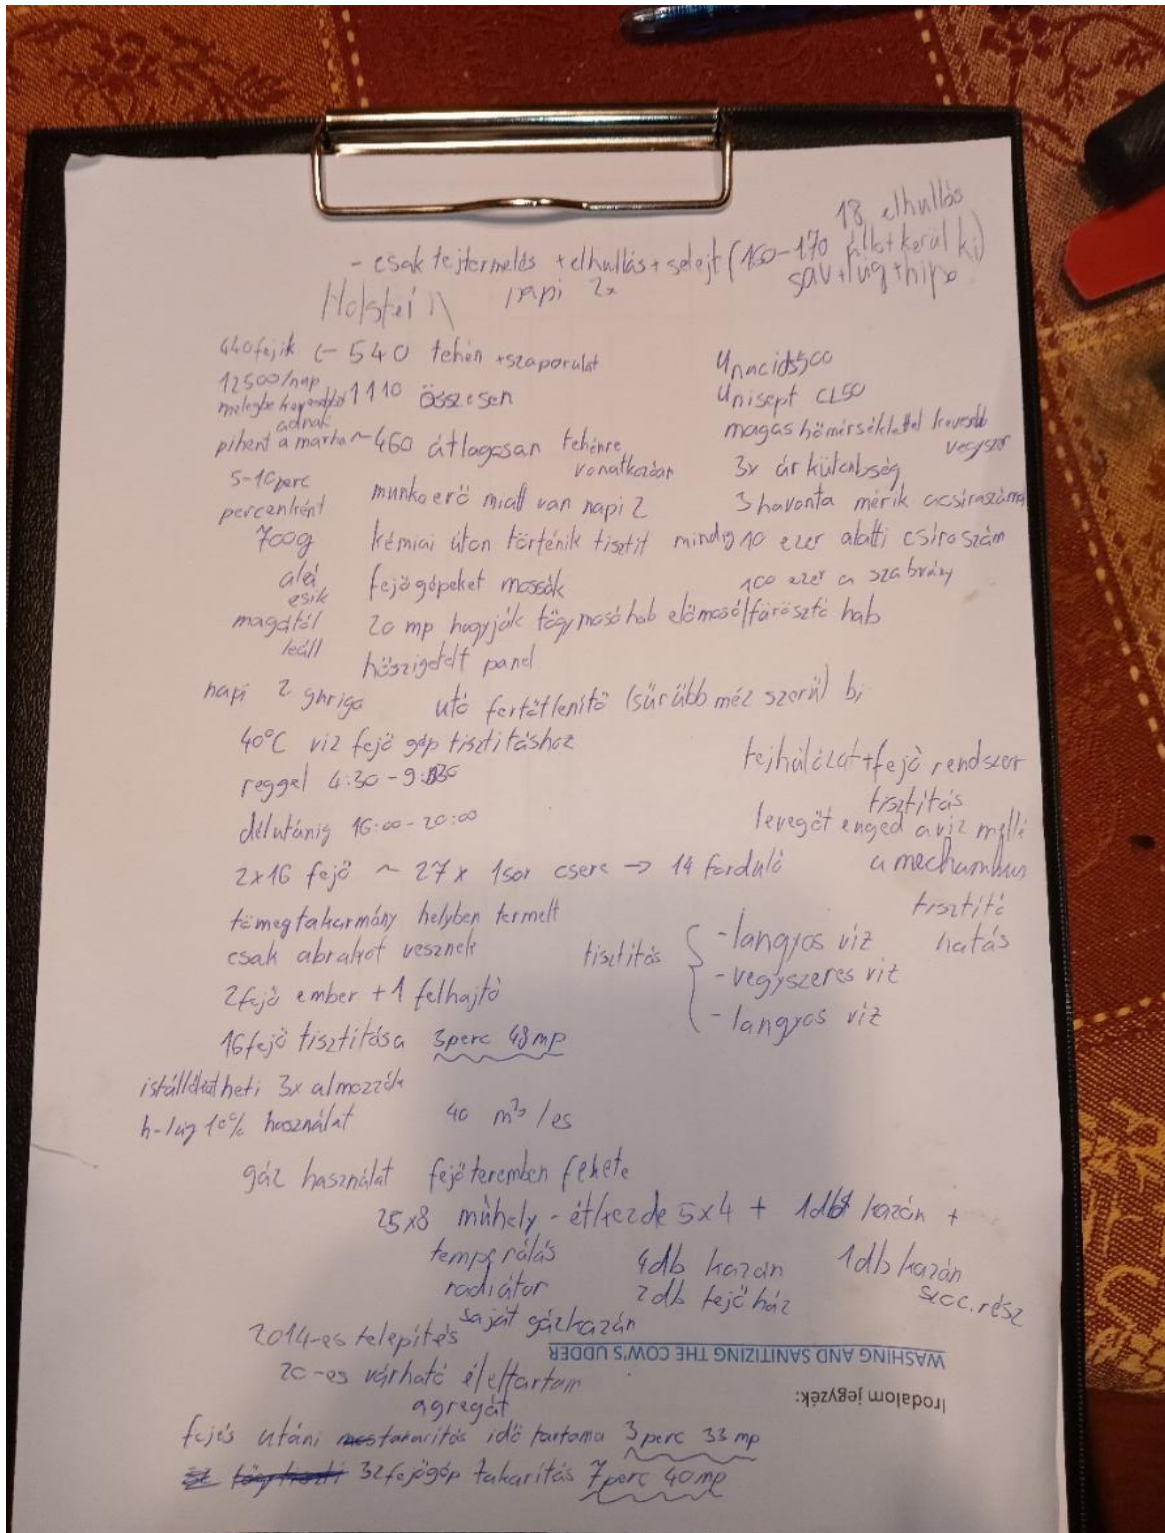 18 elhullás
- csak tejtermelés + elhullás + selejt (160-170 állat kerül ki)
napi 2x
sav + lúg + hipo
Holstein
440 fejik ← 540 tehén + szaporulat
12500/nap
1110 összesen
pihent a marha ~ 460 átlagosan tehénre
vonatkozóan
5-10 perc
percenként
700g
alá
esik
magától
leáll
munkaerő miatt van napi 2
kémiai úton történik tisztít
fejőgépeket mossák
20 mp hagyják tőgymosó hab előmosó/fürösztő hab
hőszigetelt panel
Unacid500
Unisept CL50
magas hőmérséklettel kevesebb
vegyszer
3x árkülönbség
3 havonta mérik a csíraszámot
mindig 10 ezer alatti csíraszám
100 ezer a szabvány
napi 2 garnitúra
utó fertőtlenítő (sűrűbb méz szerű) bi
40°C víz fejő gép tisztításhoz
reggel 4:30 - 9:30
délutánig 16:00 - 20:00
2x16 fejő ~ 27x 1sor csere → 14 forduló
tömegtakarmány helyben termelt
csak abrakot vesznek
2 fejő ember + 1 felhajtó
16 fejő tisztítása 3perc 48mp
tejhálózat + fejő rendszer
tisztítás
levegőt enged a víz mellé
a mechanikus
tisztító
hatás
tisztítás
- langyos víz
- vegyszeres víz
- langyos víz
istállókat heti 3x almozzák
h-lúg 10% használat 40 m³/es
gáz használat fejőteremben fekete
25x8 műhely - étkezde 5x4 + 1db kazán +
temperálás
radiátor
4db kazán
2db fejőház
1db kazán
szoc. rész
saját gázkazán
2014-es telepítés
20-es várható élettartam
agregát
WASHING AND SANITIZING THE COW'S UDDER
Irodalom jegyzék:
fejés utáni takarítás idő tartama 3 perc 33 mp
32 fejőgép takarítás 7perc 40mp